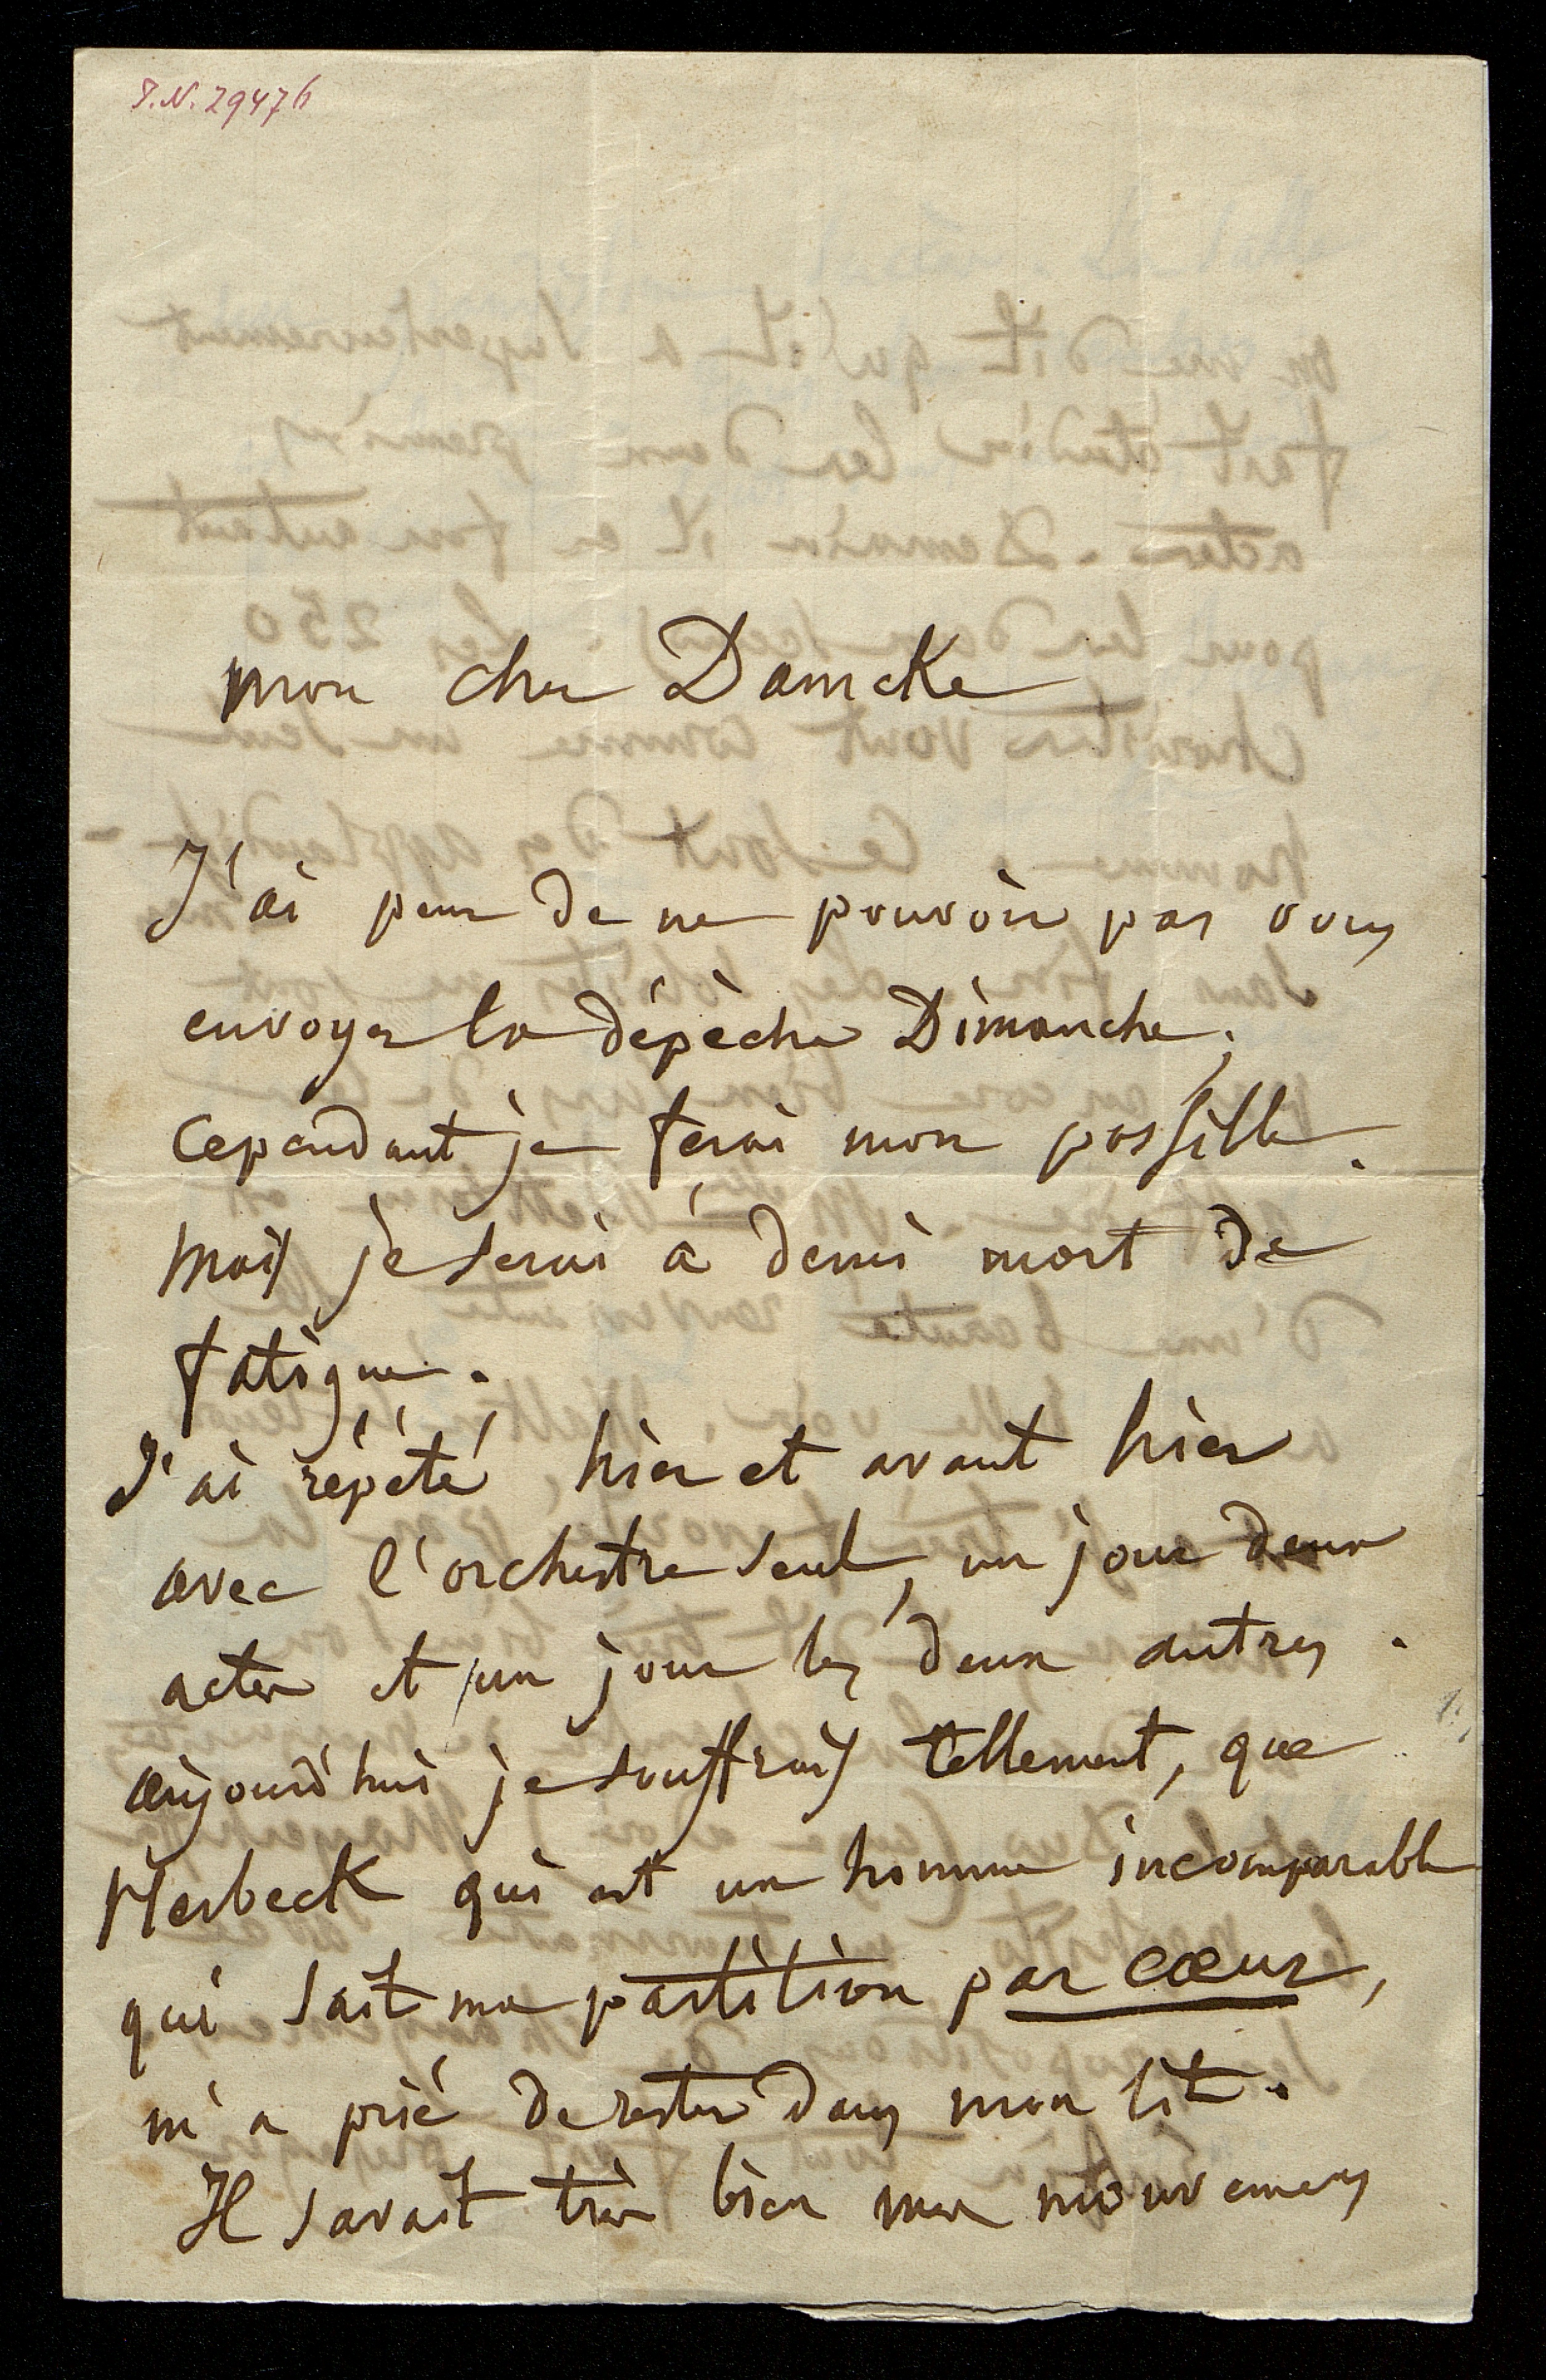 I.N. 29476
mon cher Damcke
J'ai peur de ne pouvoir pas vous
envoyer la dépèche Dimanche;
cependant je ferai mon possible.
mais je serai à demi mort de
fatigue.
J'ai répété hier et avant hier
avec l'orchestre seul, un jour deux
actes et un jour les deux autres.
aujourd'hui je souffrais tellement, que
Herbeck qui est un homme incomparable
qui sait ma partition par cœur,
m'a prié de rester dans mon lit.
Il savait très bien mes mouvemens